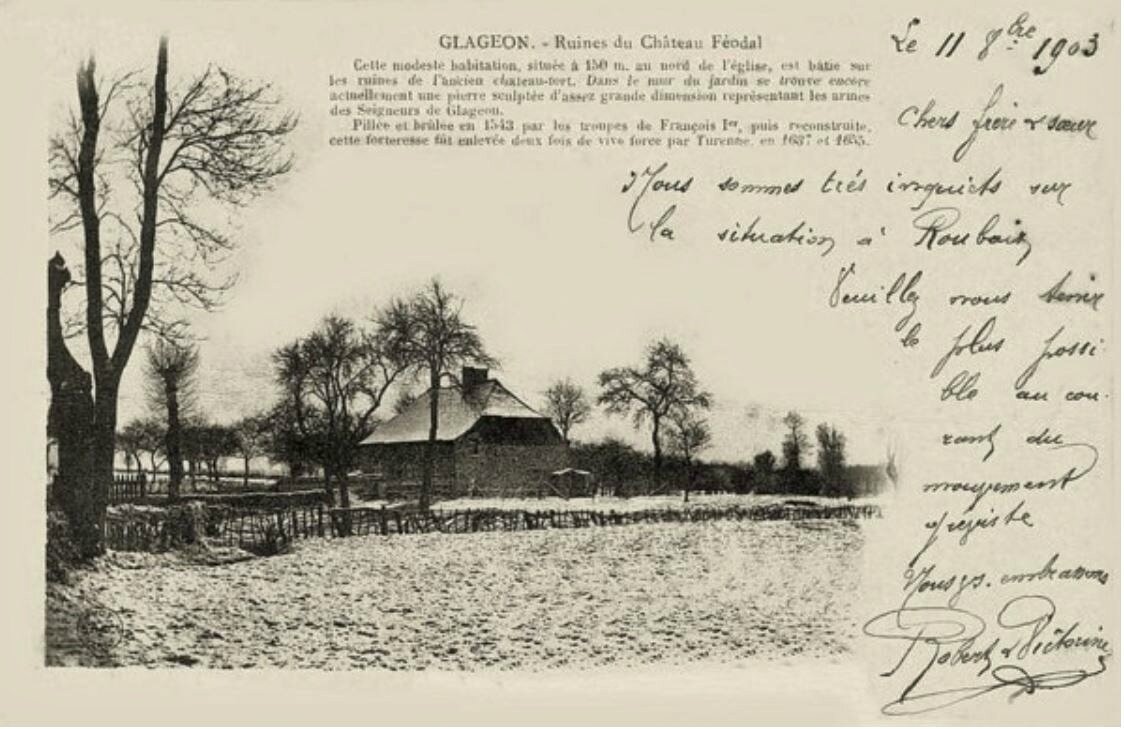 GLAGEON. - Ruines du Château Féodal
Cette modeste habitation, située à 150 m. au nord de l'église, est bâtie sur
les ruines de l'ancien château-fort. Dans le mur du jardin se trouve encore
actuellement une pierre sculptée d'assez grande dimension représentant les armes
des Seigneurs de Glageon.
Pillée et brûlée en 1543 par les troupes de François Ier, puis reconstruite,
cette forteresse fût enlevée deux fois de vive force par Turenne, en 1637 et 1655.
Le 11 8bre 1903
Chers frère & sœur
Nous sommes très inquiets sur
la situation à Roubaix
Veuillez nous tenir
le plus possi-
ble au cou-
rant du
mouvement
gréviste
Nous vs. embrassons
Robert & Victorine